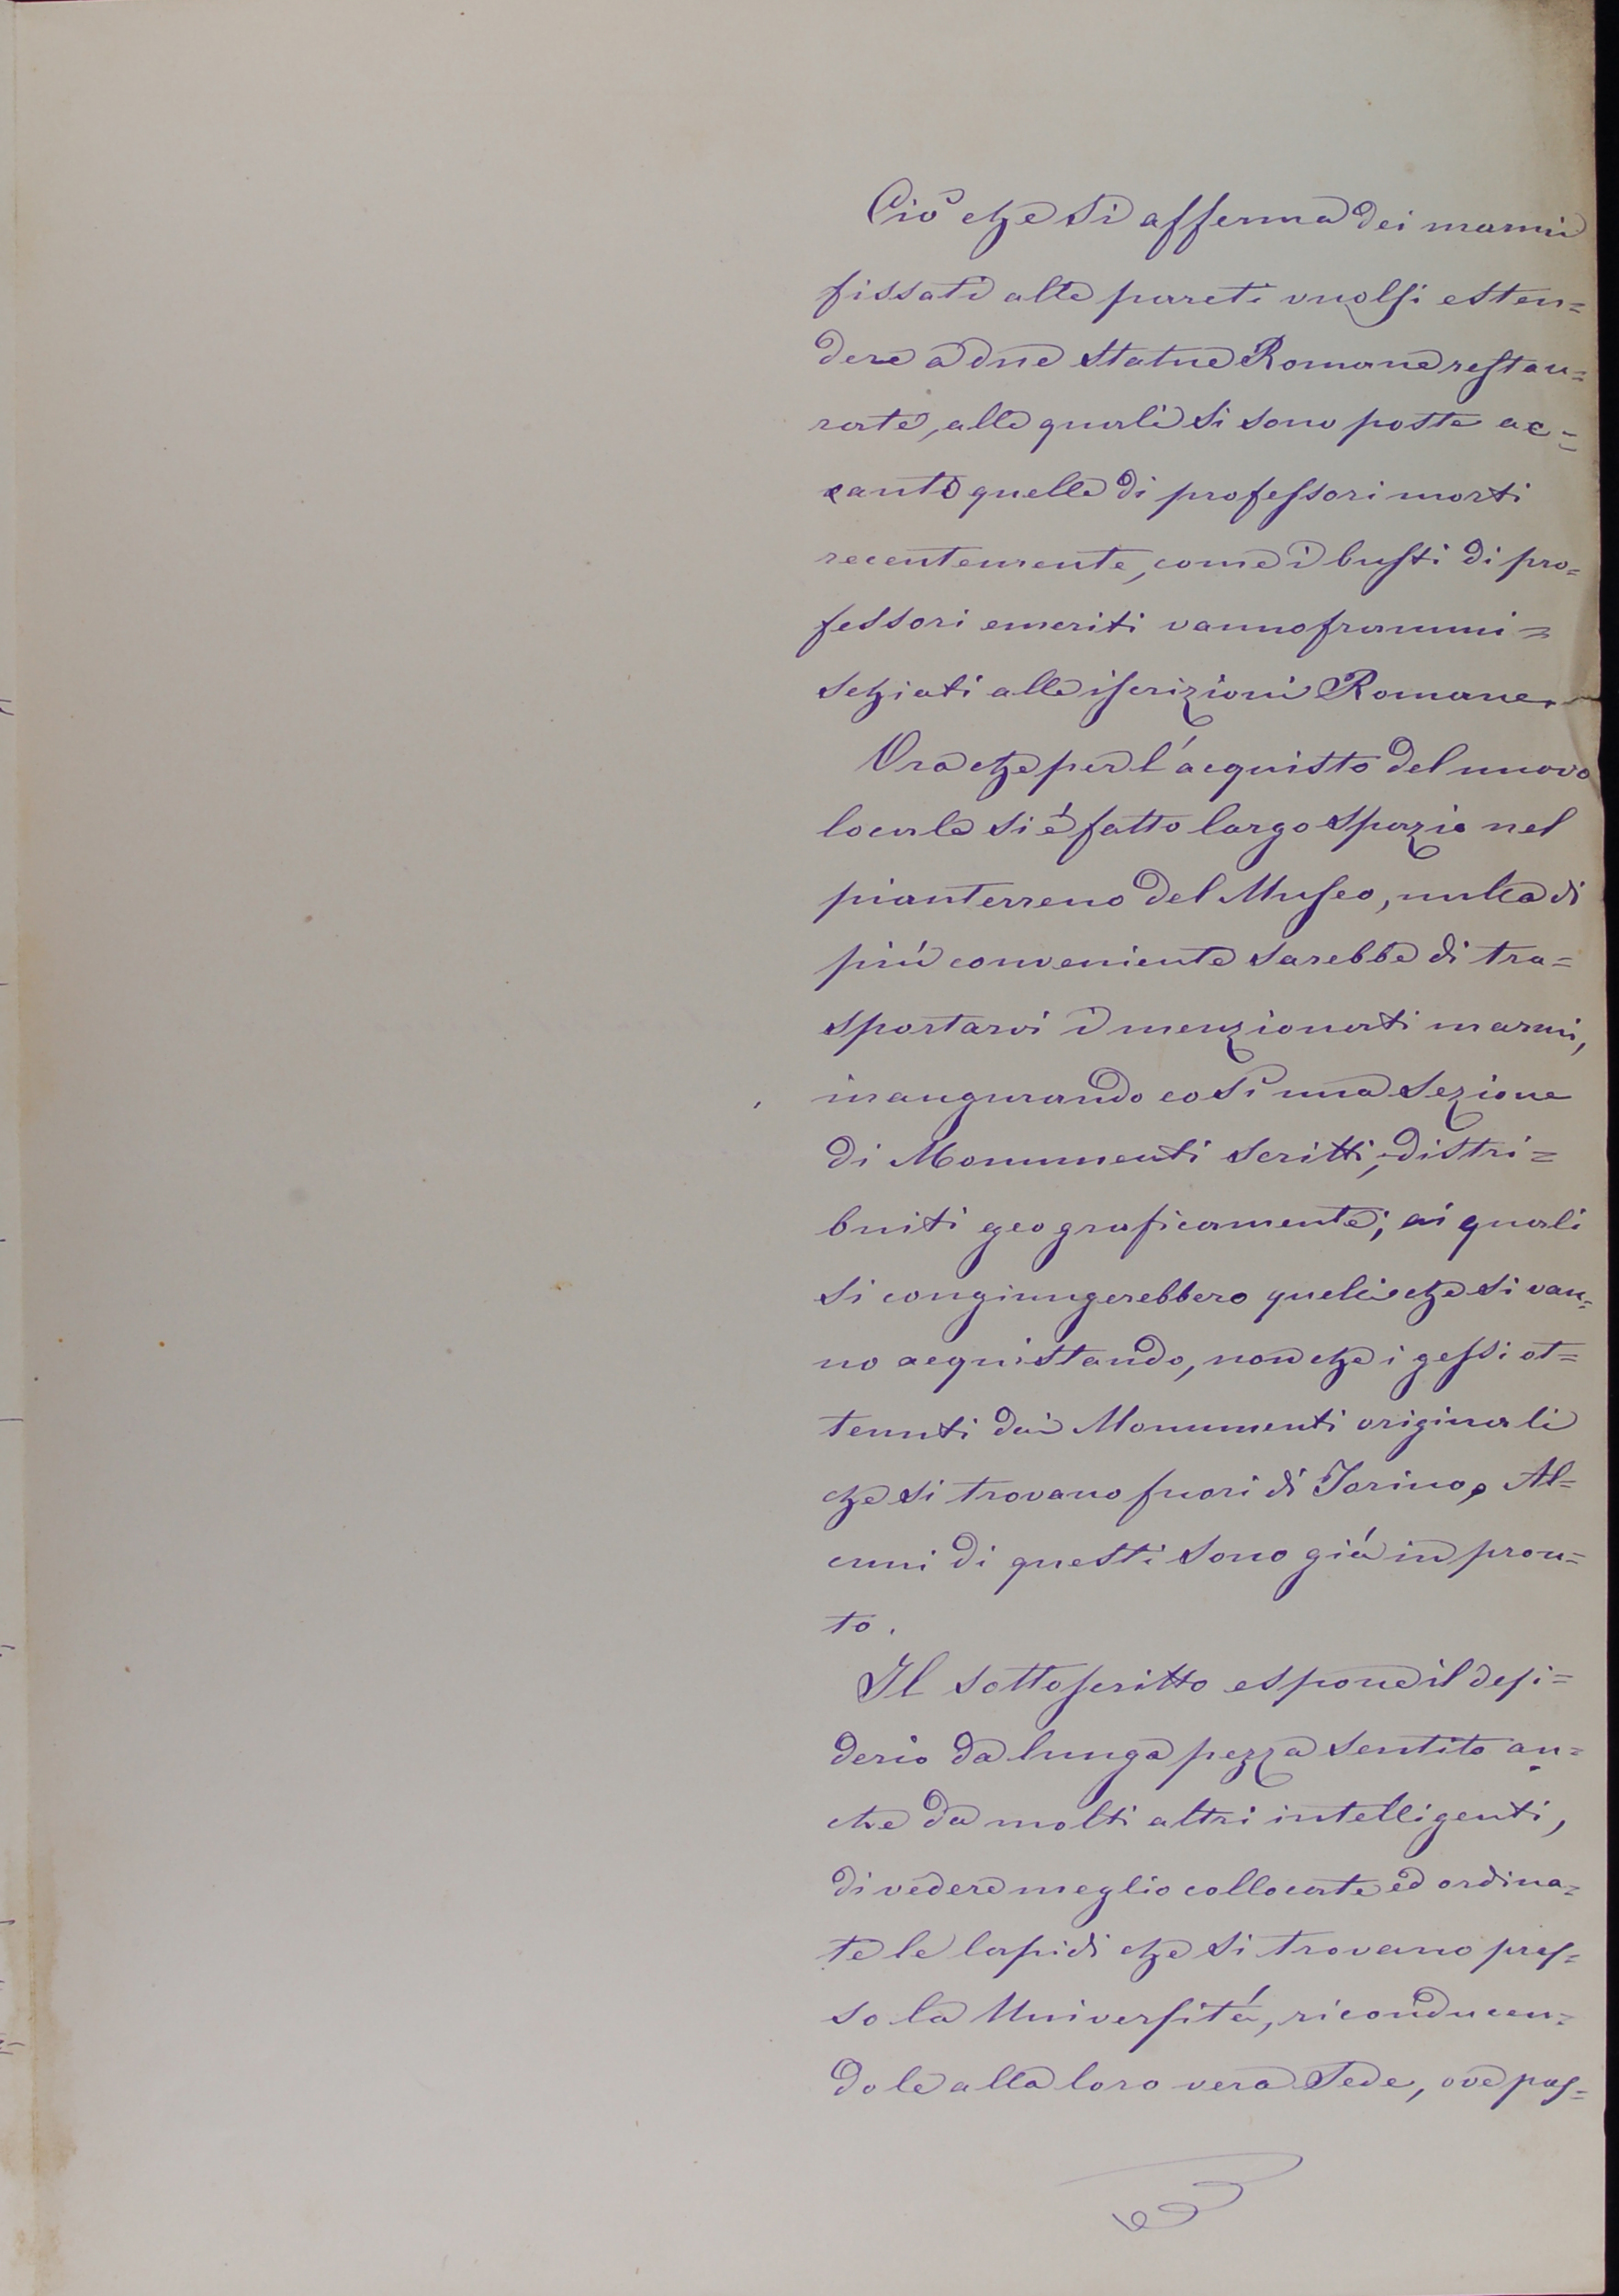 Ciò che si afferma dei marmi
fissati alle pareti vuolsi esten=
dere a due statue Romane restau=
rate, alle quali si sono poste ac=
canto quelle di professori morti
recentemente, come i busti di pro=
fessori emeriti vanno frammi=
schiati alle iscrizioni Romane.
Ora che per l'acquisto del nuovo
locale si è fatto largo spazio nel
pianterreno del Museo, nulla di
più conveniente sarebbe di tra=
sportarvi i menzionati marmi,
inaugurando così una sezione
di Monumenti scritti, distri=
buiti geograficamente; ai quali
si congiungerebbero quelli che si van=
no acquistando, non che i gessi ot=
tenuti dai Monumenti originali
che si trovano fuori di Torino. Al=
cuni di questi sono già in pron=
to.
Il sottoscritto espone il desi=
derio da lunga pezza sentito an=
che da molti altri intelligenti,
di vedere meglio collocate ed ordina=
te le lapidi che si trovano pres=
so la Università, riconducen=
dole alla loro vera Sede, ove pos=